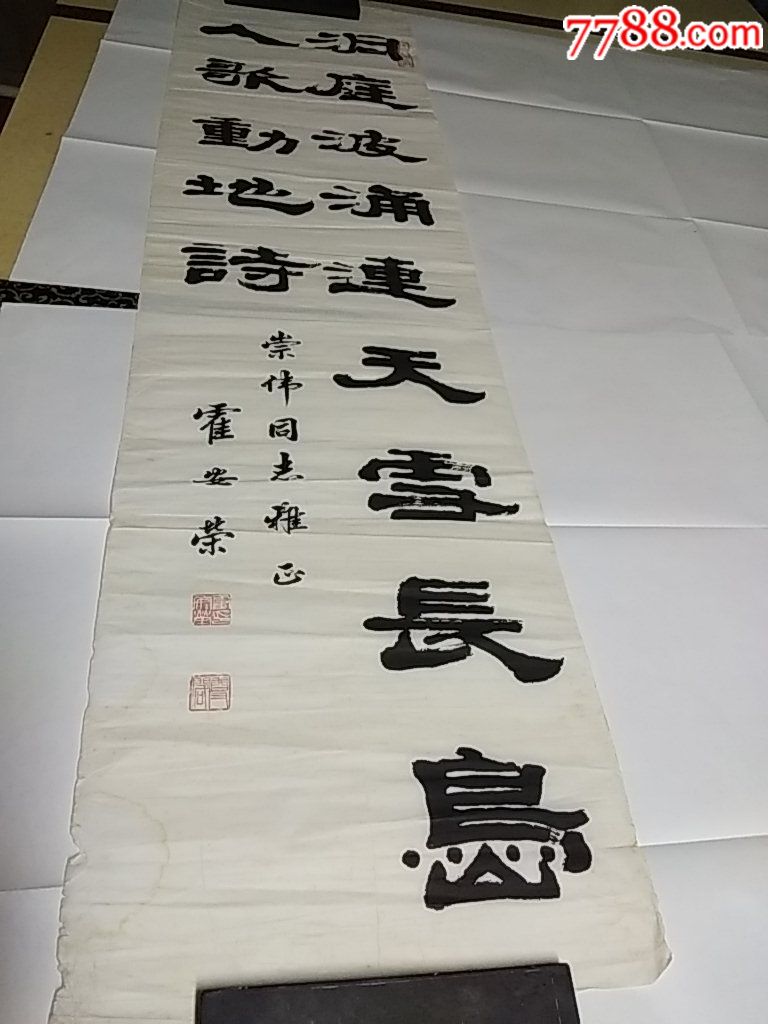 7788.com
洞庭波涌連天雪長島
人歌動地詩
崇伟同志雅正
霍安荣